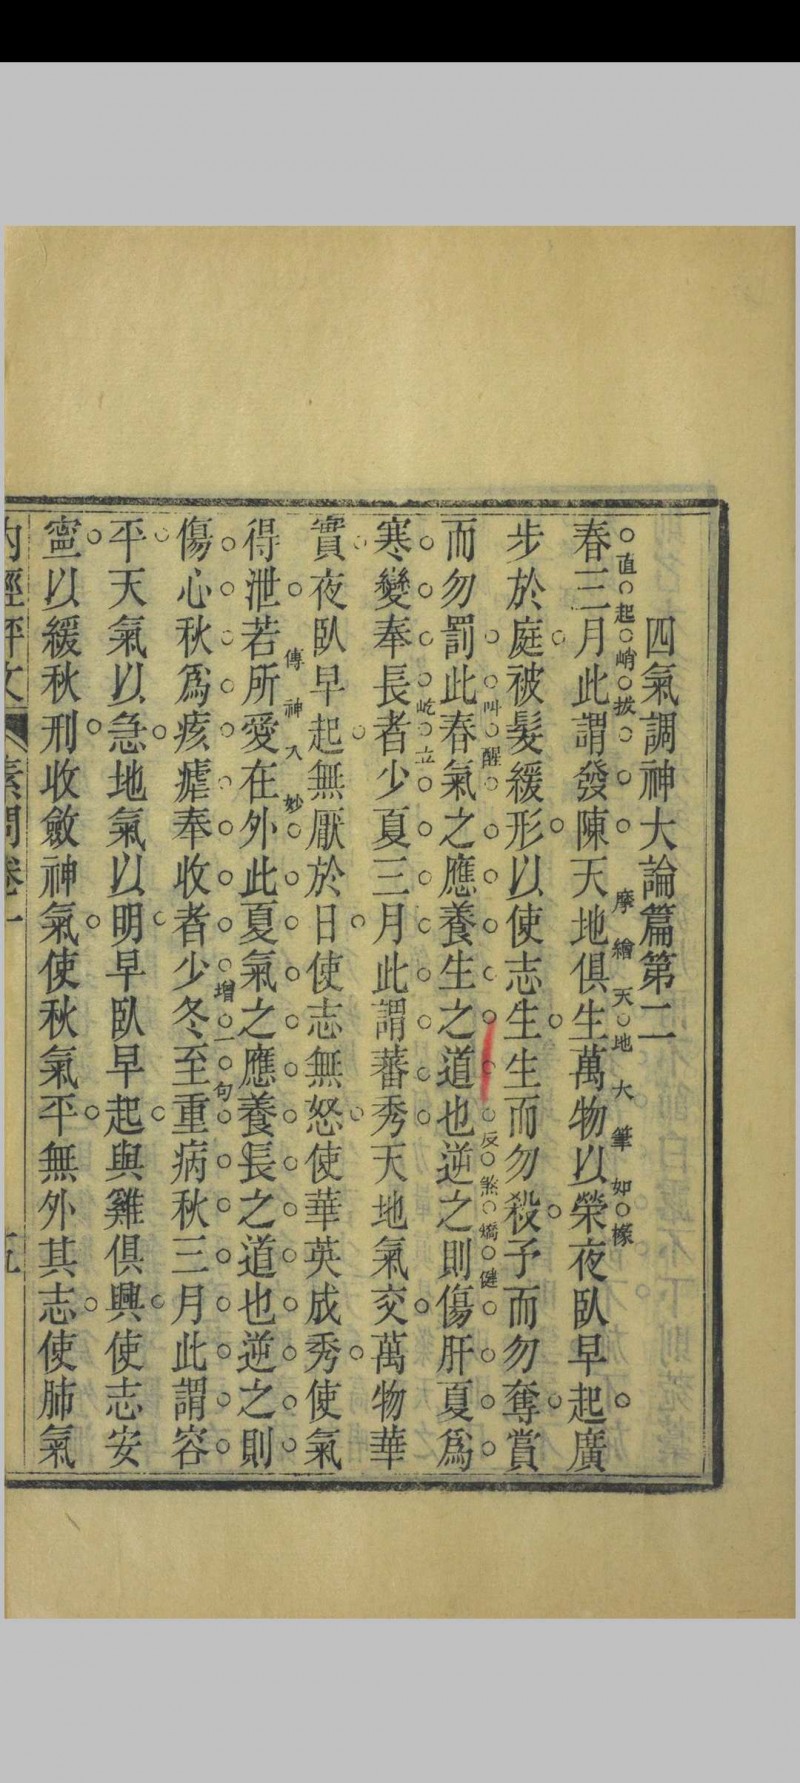 四氣調神大論篇第二
春三月此謂發陳天地俱生萬物以榮夜臥早起廣
直起峭拔
摩繪天地大筆如椽
步於庭被髮緩形以使志生生而勿殺予而勿奪賞
而勿罰此春氣之應養生之道也逆之則傷肝夏爲
叫醒
反煞矯健
寒變奉長者少夏三月此謂蕃秀天地氣交萬物華
屹立
實夜臥早起無厭於日使志無怒使華英成秀使氣
得泄若所愛在外此夏氣之應養長之道也逆之則
傳神入妙
傷心秋爲痎瘧奉收者少冬至重病秋三月此謂容
增一句
平天氣以急地氣以明早臥早起與雞俱興使志安
寧以緩秋刑收斂神氣使秋氣平無外其志使肺氣
內經評文
素問卷一
五